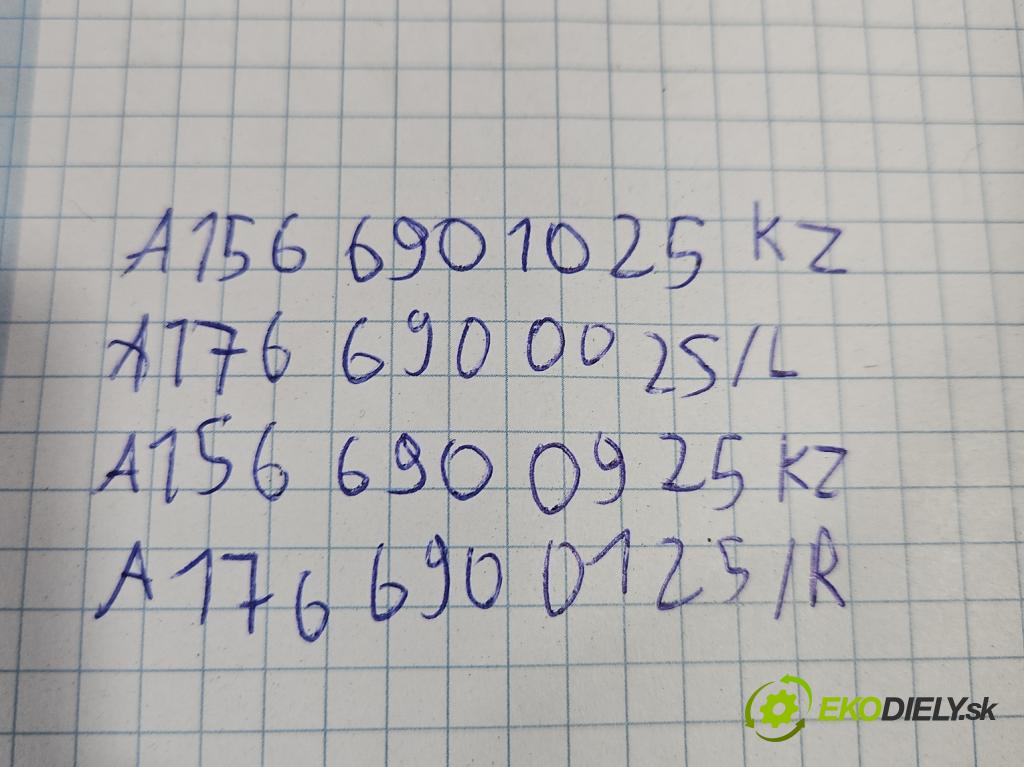 A156 690 10 25 KZ
A176 690 00 25/L
A156 690 09 25 KZ
A176 690 0125/R
EKODIELY.sk